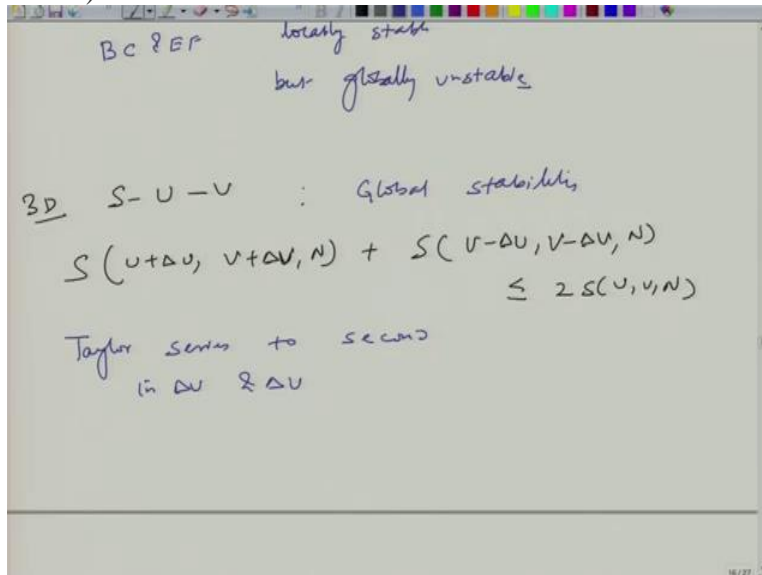 BC & EF locally stabl
but globally unstable
3D S-U-V : Global stability
S(U+ΔU, V+ΔV, N) + S(U-ΔU, V-ΔV, N)
≤ 2S(U,V,N)
Taylor series to second
in ΔU & ΔU
16/27